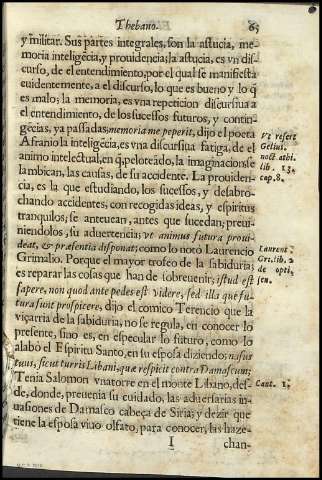 Thebano. 65
y militar. Sus partes integrales, son la astucia, me-
moria inteligẽcia, y prouidencia; la astucia, es vn dis-
curso, de el entendimiento, por el qual se manifiesta
euidentemente, a el discurso, lo que es bueno y lo q̃
es malo; la memoria, es vna repeticion discursiua a
el entendimiento, de los sucessos futuros, y contin-
gẽcias, ya passadas; memoria me peperit, dijo el poeta
Afranio la inteligẽcia, es vna discursiua fatiga, de el
animo intelectual, en q̃, peloteãdo, la imaginacion se
lambican, las causas, de su accidente. La prouiden-
cia, es la que estudiando, los sucessos, y desabro-
chando accidentes, con recogidas ideas, y espiritus
tranquilos; se anteuean, antes que sucedan; preui-
niendolos, su aduertencia; vt animus futura proui-
deat, & præsentia disponat; como lo notò Laurencio
Grimalio. Porque el mayor trofeo de la sabiduria
es reparar las cosas que han de sobreuenir; istud est
sapere, non quod ante pedes est videre, sed illa que fu-
tura sunt prospicere; dijo el comico Terencio que la
viçarria de la sabiduria, no se regula, en conocer lo
presente, sino es, en especular lo futuro, como lo
alabò el Espiritu Santo, en su esposa diziendo; nasus
tuus, sicut turris Libani, quæ respicit contra Damascum;
Tenia Salomon vna torre en el monte Libano, des-
de, donde, preuenia su cuidado, las aduersarias in-
uasiones de Damasco cabeça de Siria; y dezir que
tiene la esposa viuo olfato, para conocer, las haze-
I chan-
Vt refert
Gelius.
noct. athi.
lib. 13.
cap. 8.
Laurent.
Gri. lib. 2
de opti,
sen.
Cant. 1.